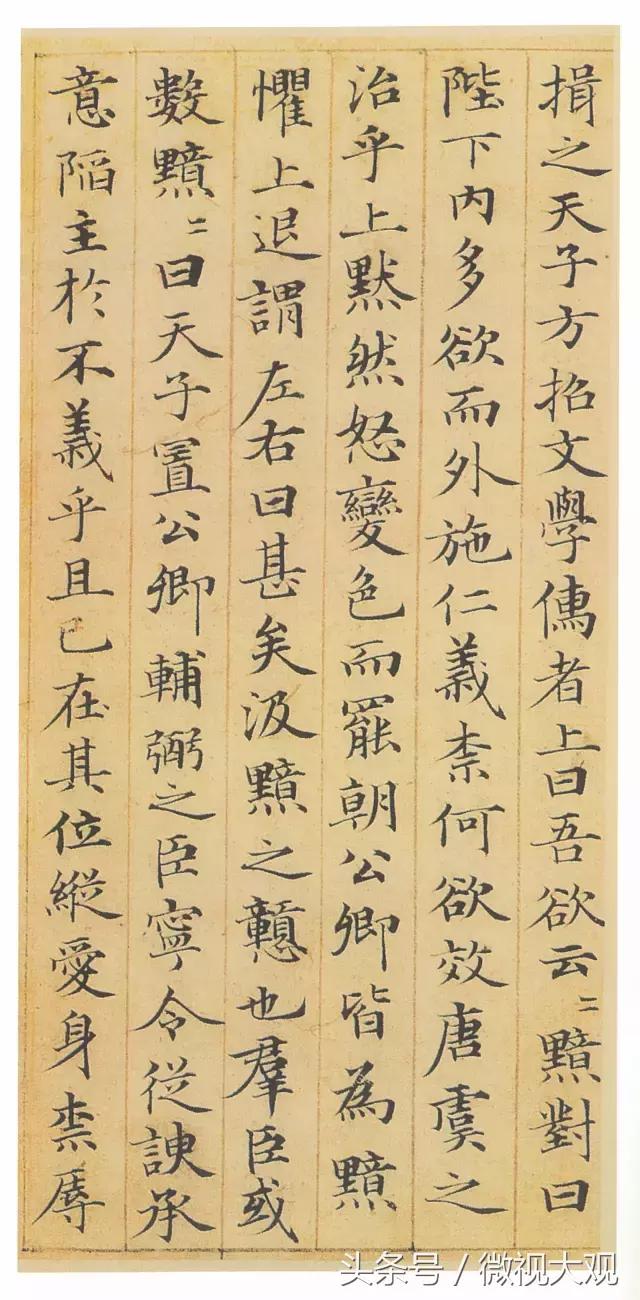 揖之天子方招文學儒者上曰吾欲云〻黯對曰
陛下內多欲而外施仁義柰何欲效唐虞之
治乎上默然怒變色而罷朝公卿皆為黯
懼上退謂左右曰甚矣汲黯之戇也羣臣或
數黯〻曰天子置公卿輔弼之臣寧令從諛承
意陷主於不義乎且已在其位縱愛身柰辱
头条号 / 微视大观